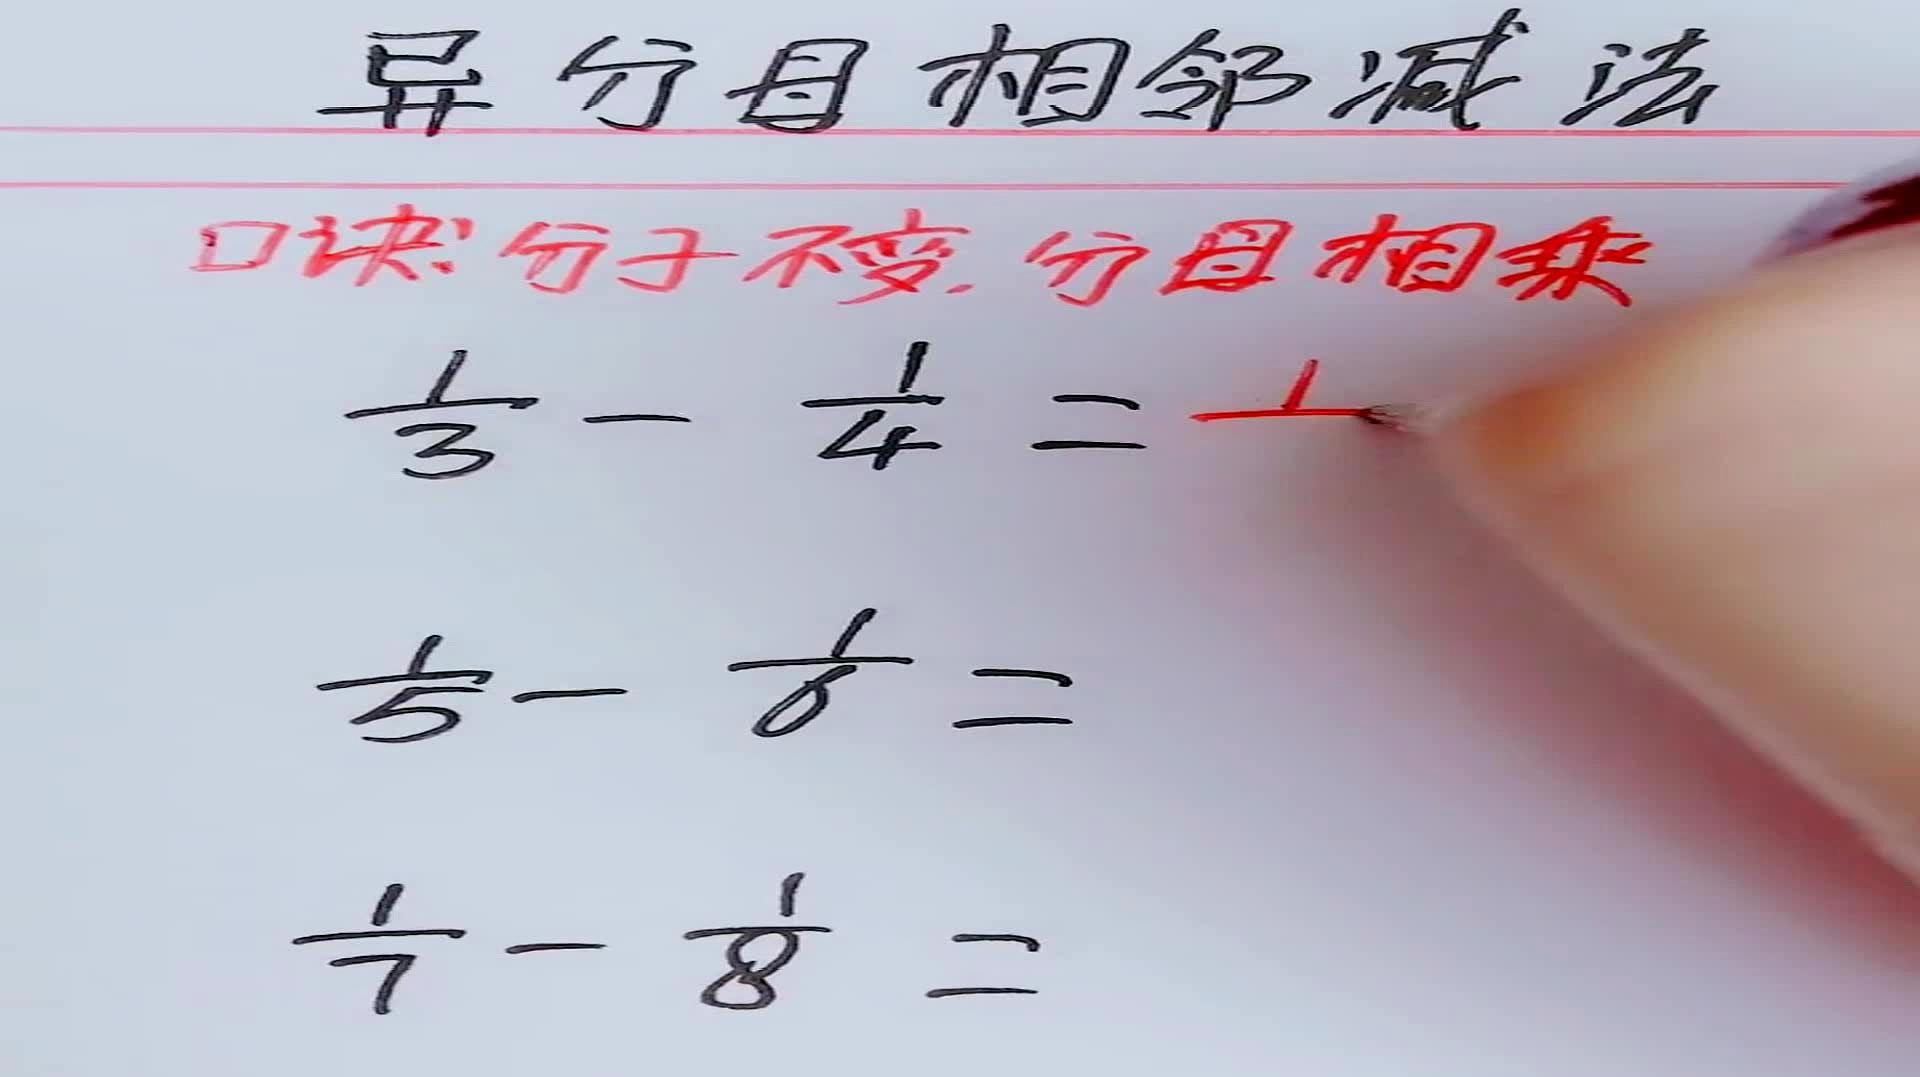 异分母相邻减法
口诀:分子不变.分母相乘
1/3 - 1/4 = 1/
1/5 - 1/6 =
1/7 - 1/8 =